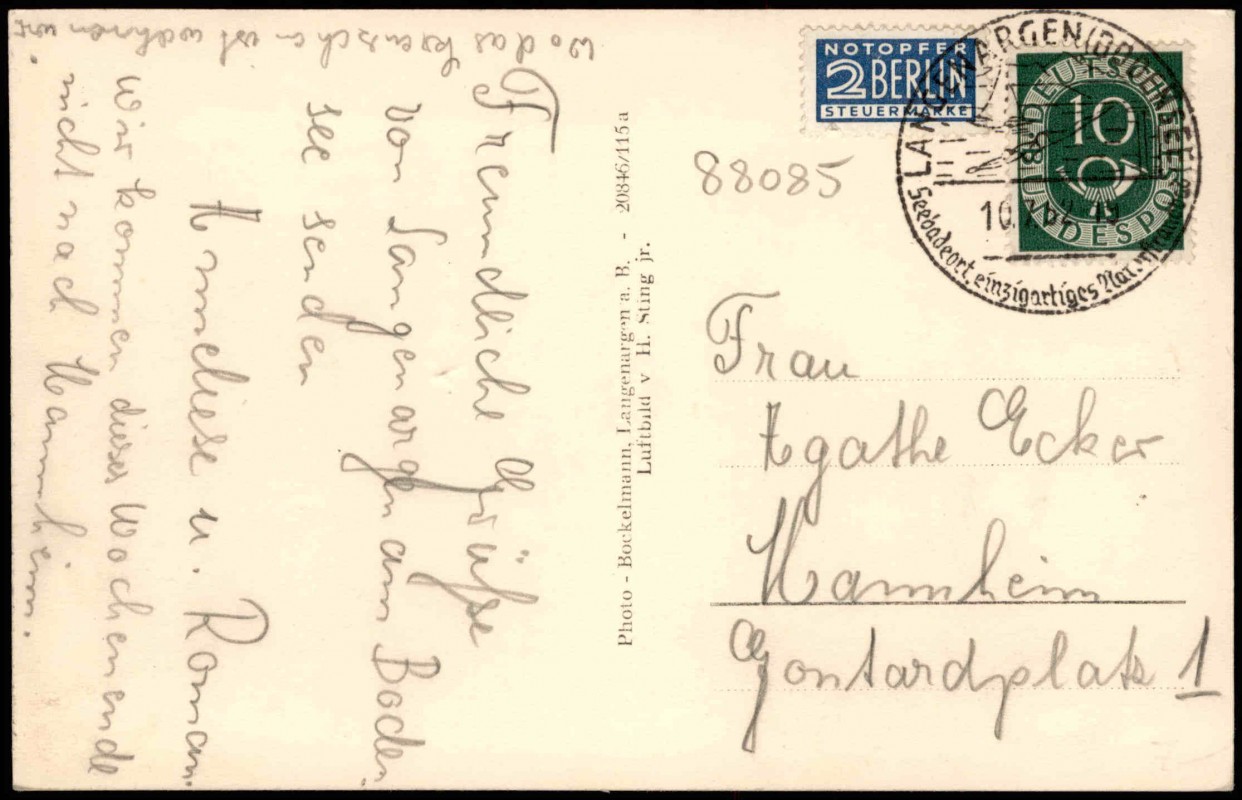 Freundliche Grüße
von Langenargen am Boden
see senden
Anneliese u. Roman.
Wir kommen dieses Wochenende
nicht nach Mannheim.
Wo das ist wohnen wir.
Photo - Bockelmann, Langenargen a. B. - 20846/115a
Luftbild v H. Sting jr.
NOTOPFER
2 BERLIN
STEUERMARKE
DEUTSCHE BUNDESPOST
10
LANGENARGEN (BODENSEE)
10. 52 - 19
Seebadeort einzigartiges
88085
Frau
Agathe Ecker
Mannheim
Gontardplatz 1